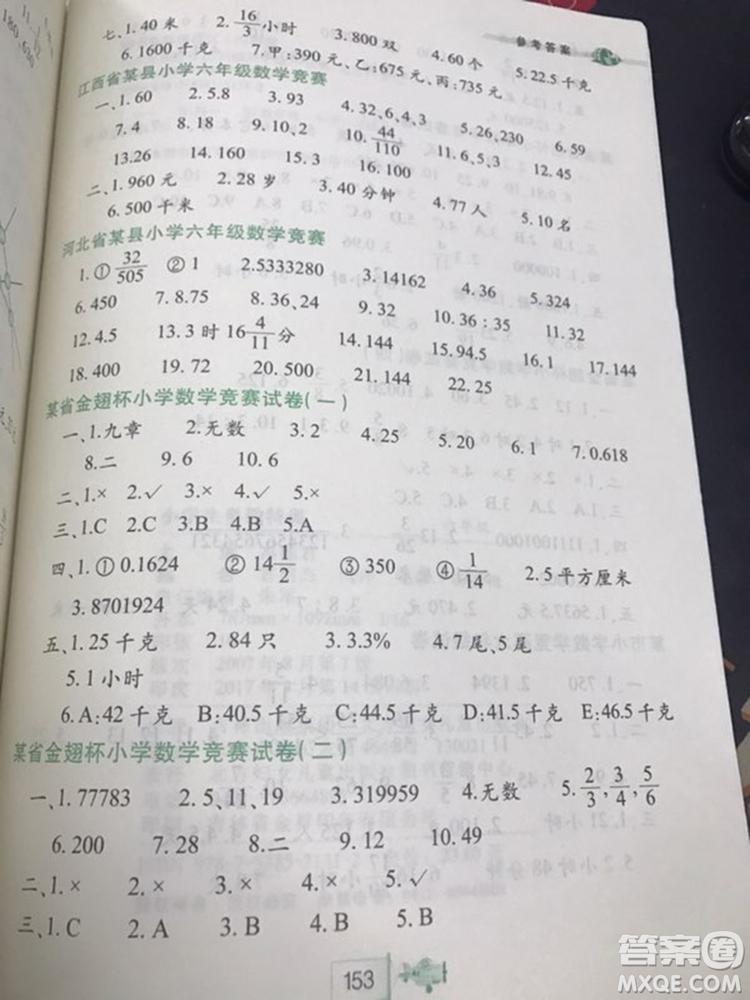 参考答案
七、1.40 米 2.16/3小时 3.800 双 4.60 个 5.22.5 千克
6.1600 千克 7.甲:390 元、乙:675 元、丙:735 元
江西省某县小学六年级数学竞赛
一、1.60 2.5.8 3.93 4.32、6、4、3 5.26、230 6.59
7.4 8.18 9.10、2 10.44/110 11.6、5、3 12.45
13.26 14.160 15.3 16.100
二、1.960 元 2.28 岁 3.40 分钟 4.77 人 5.10 名
6.500 千米
河北省某县小学六年级数学竞赛
1.①32/505 ②1 2.5333280 3.14162 4.36 5.324
6.450 7.8.75 8.324 9.32 10.36:35 11.32
12.4.5 13.3 时 16 4/11 分 14.144 15.94.5 16.1 17.144
18.400 19.72 20.500 21.144 22.25
某省金翅杯小学数学竞赛试卷(一)
一、1.九章 2.无数 3.2 4.25 5.20 6.1 7.0.618
8.二 9.6 10.6
二、1.× 2.√ 3.× 4.√ 5.×
三、1.C 2.C 3.B 4.B 5.A
四、1.①0.1624 ②14 1/2 ③350 ④1/14 2.5 平方厘米
3.8701924
五、1.25 千克 2.84 只 3.3.3% 4.7 尾、5 尾
5.1 小时
6.A:42 千克 B:40.5 千克 C:44.5 千克 D:41.5 千克 E:46.5 千克
某省金翅杯小学数学竞赛试卷(二)
一、1.77783 2.5、11、19 3.319959 4.无数 5.2/3、3/4、5/6
6.200 7.28 8.二 9.12 10.49
二、1.× 2.× 3.× 4.× 5.√
三、1.C 2.A 3.B 4.B 5.B
153
答案圈
MXQE.COM